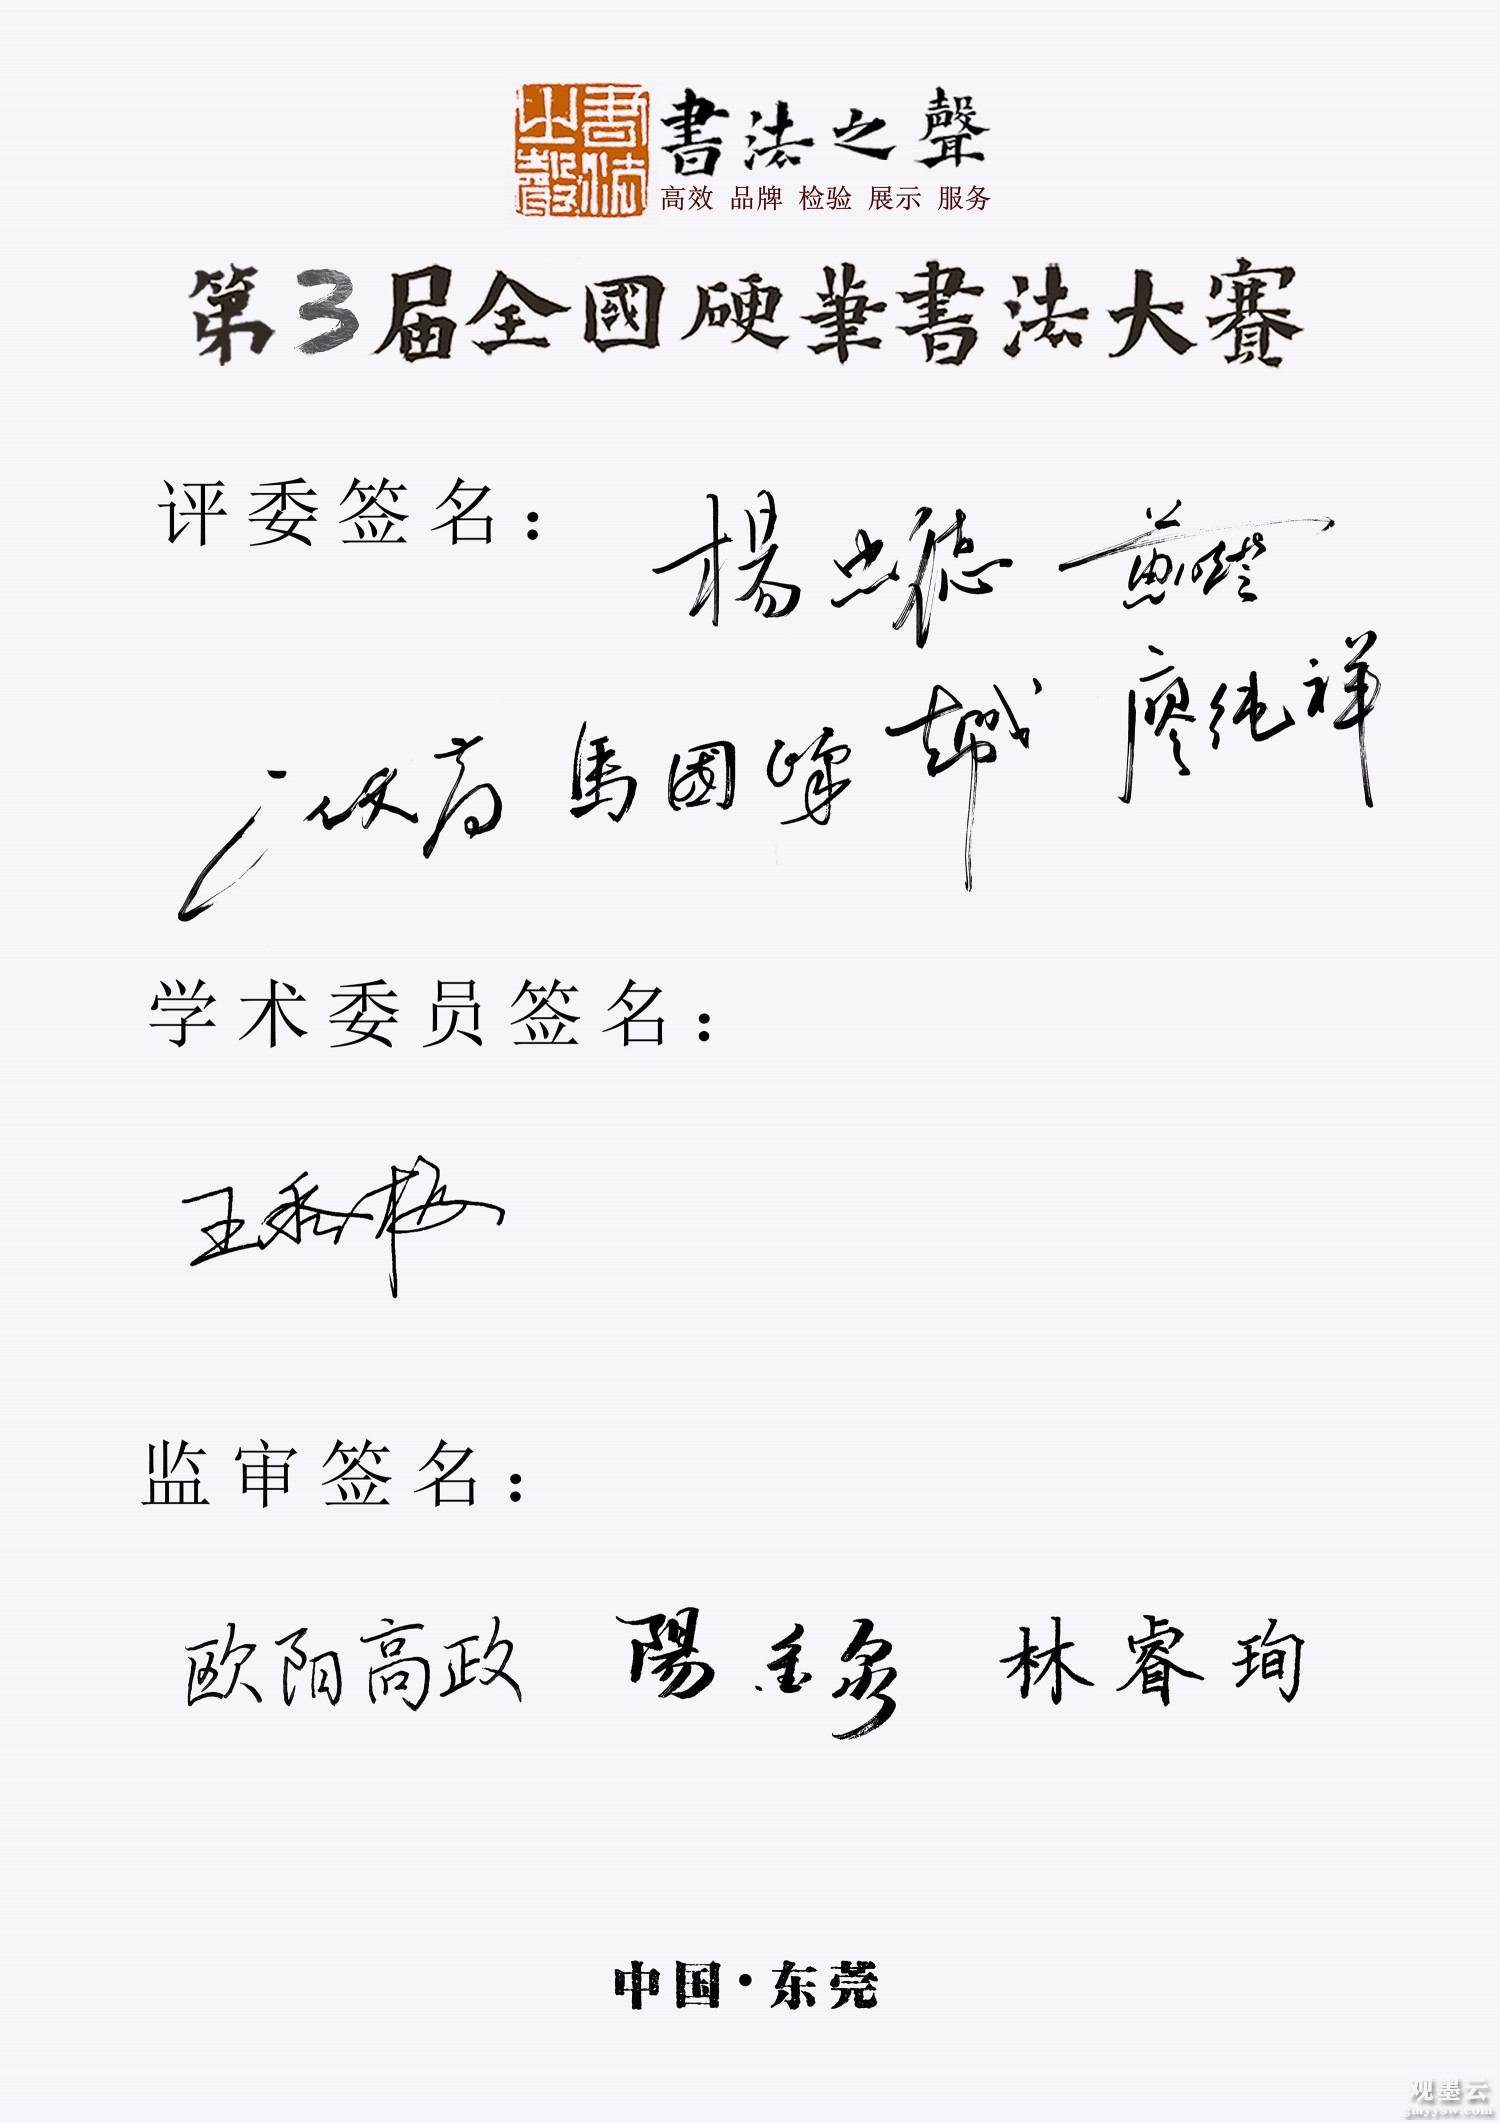 書法之聲
書法之聲
高效 品牌 检验 展示 服务
第3届全國硬筆書法大賽
评委签名：
楊忠德
馬國峰 廖纯祥
学术委员签名：
王香梅
监审签名：
欧阳高政 陽金泉 林睿珣
中国·东莞
观墨云